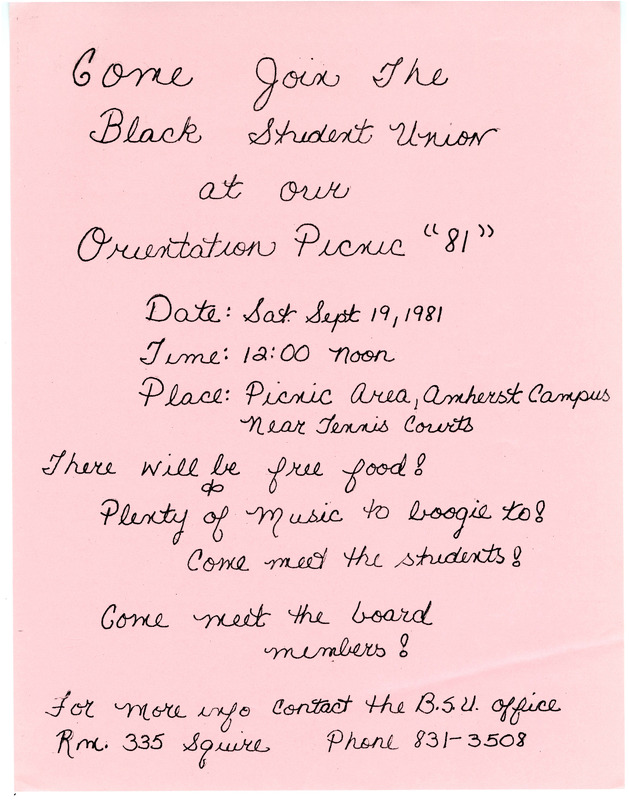 Come Join The
Black Student Union
at our
Orientation Picnic "81"
Date: Sat Sept 19, 1981
Time: 12:00 Noon
Place: Picnic Area, Amherst Campus
Near Tennis Courts
There will be free food!
&
Plenty of Music to boogie to!
Come meet the students!
Come meet the board
members!
For more info contact the B.S.U. office
Rm. 335 Squire Phone 831-3508